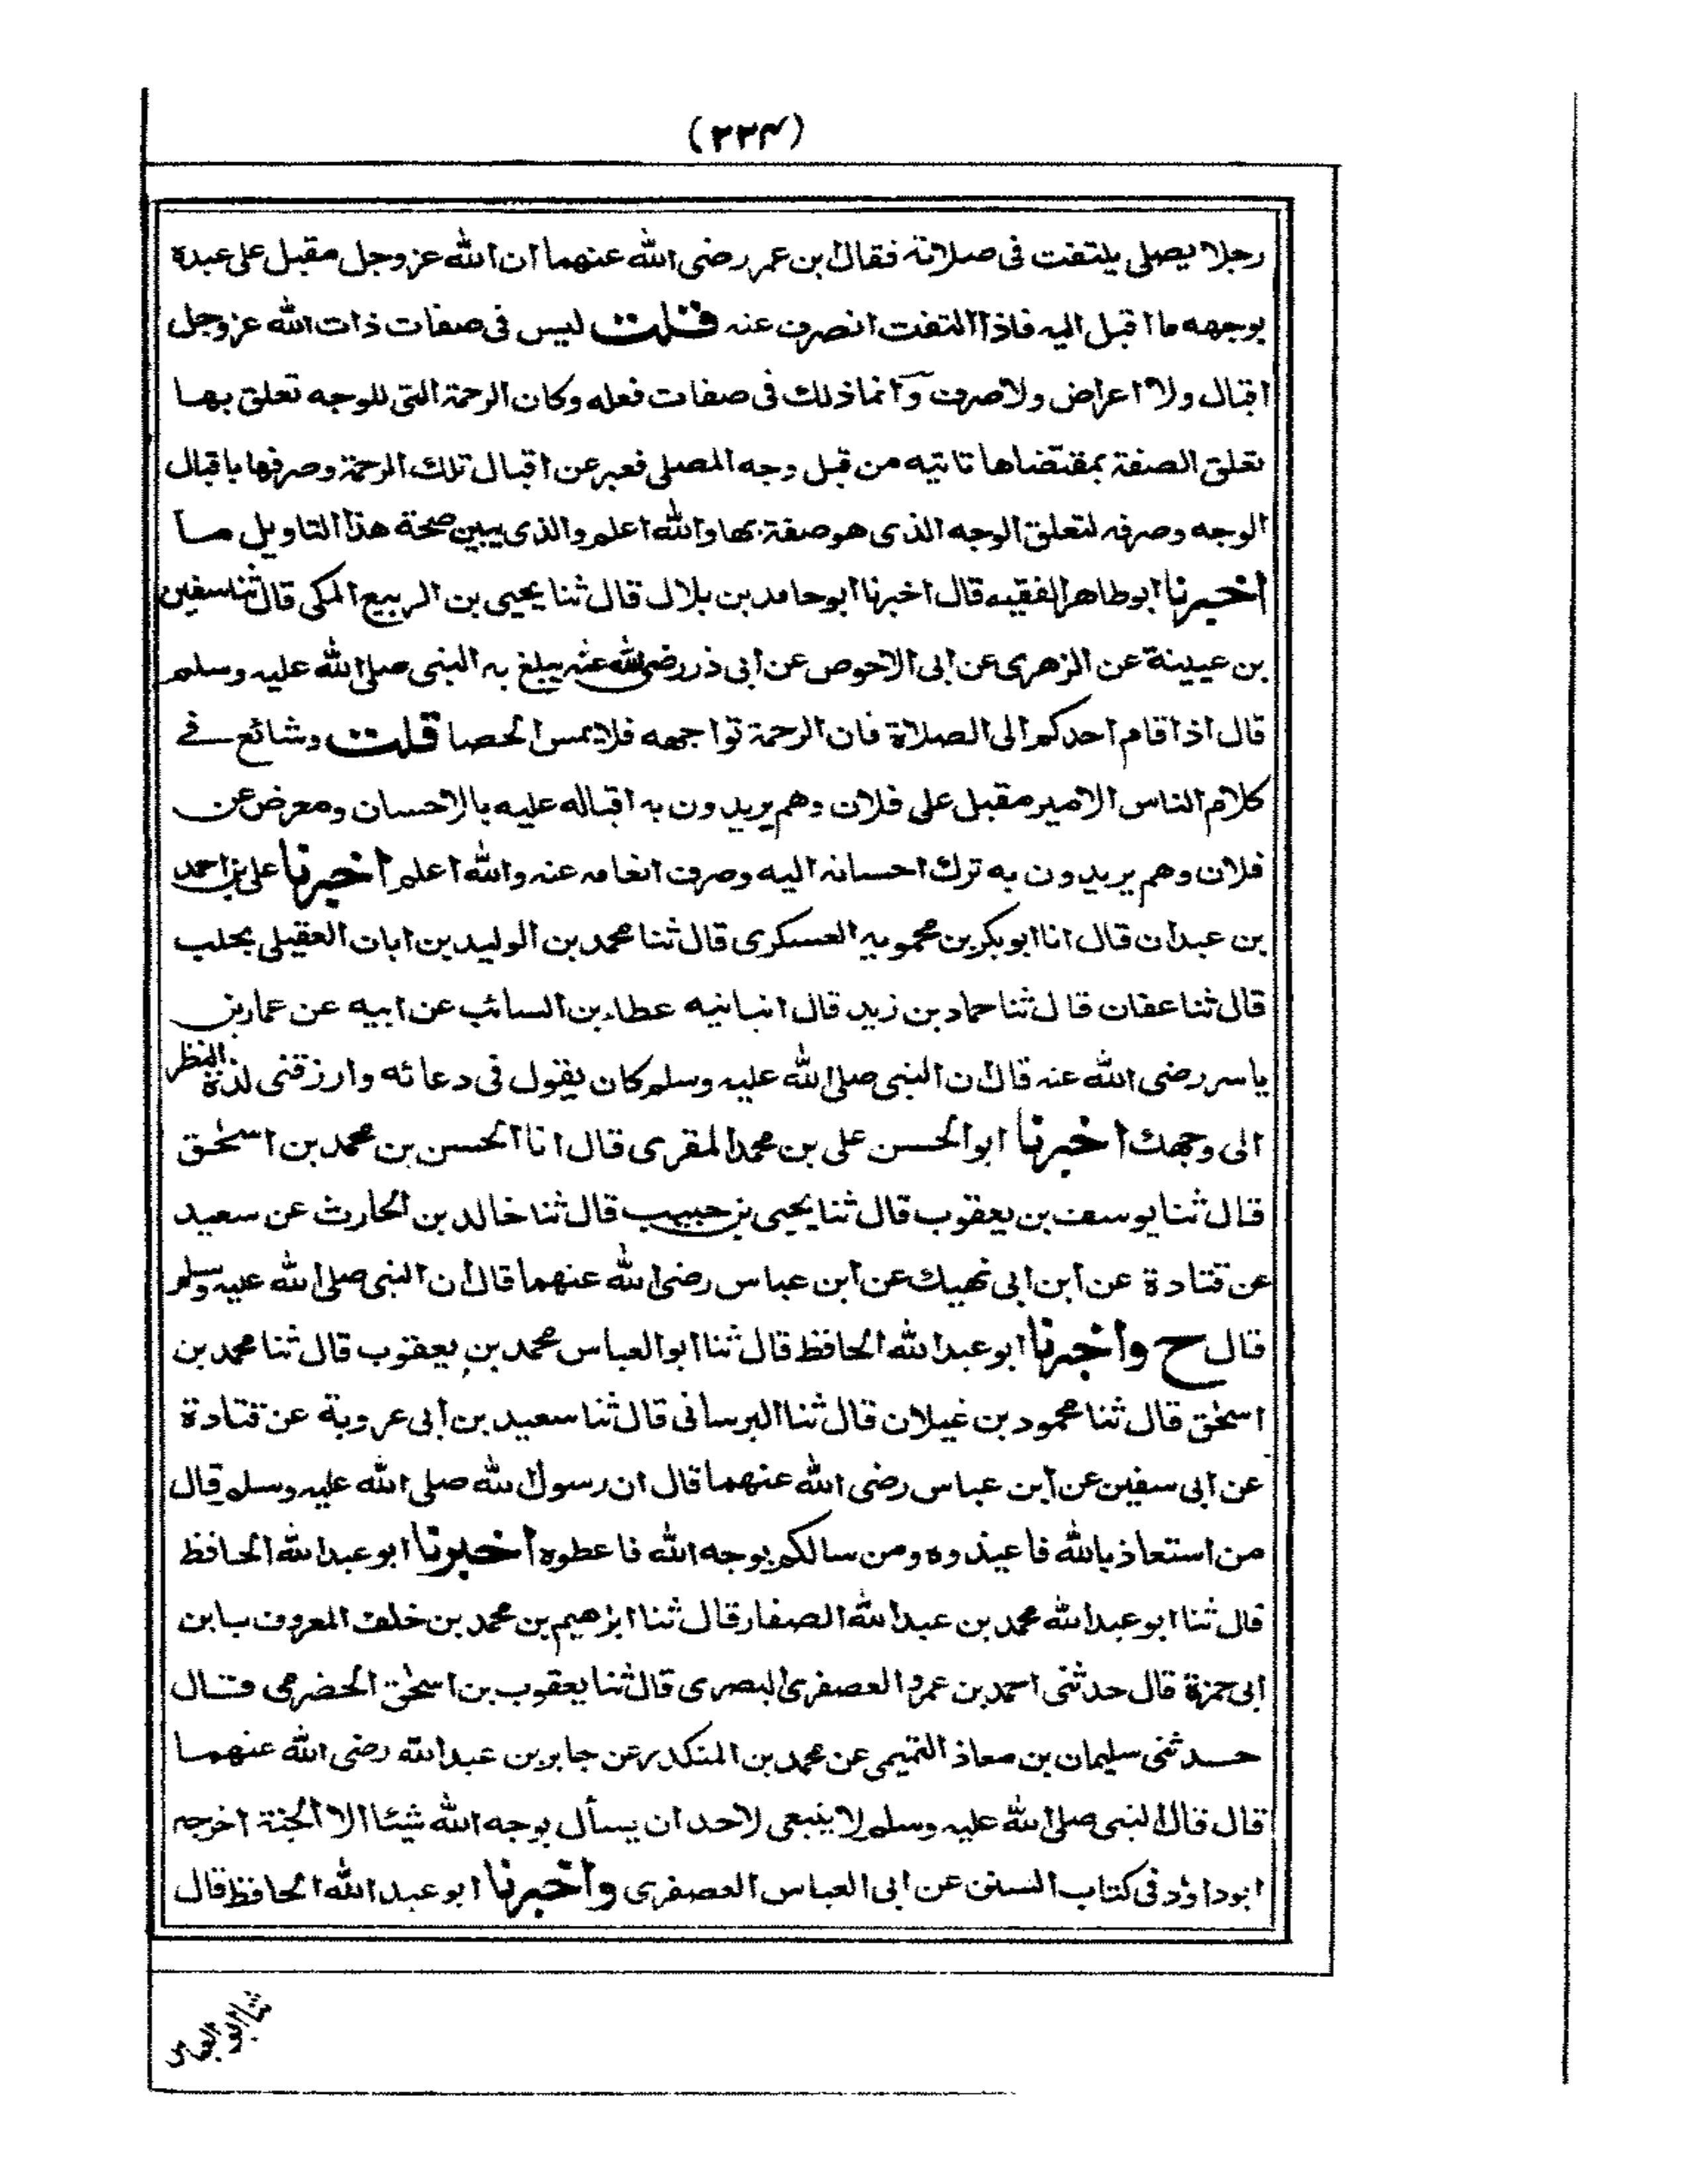 (٢٢٤)
رجلا يصلى يلتفت فى صلاته فقال ابن عمر رضى الله عنهما ان الله عز وجل مقبل على عبده
بوجهه ما اقبل اليه فاذا التفت انصرف عنه قلت ليس فى صفات ذات الله عز وجل
اقبال ولا اعراض ولا صرف وانما ذلك فى صفات فعله وكان الرحمة التى للوجه تعلق بها
تعلق الصفة بمقتضاها تاتيه من قبل وجه المصلى فعبر عن اقبال تلك الرحمة وصرفها باقبال
الوجه وصرفه لتعلق الوجه الذى هو صفة بها والله اعلم والذى يبين صحة هذا التاويل ما
اخبرنا ابو طاهر الفقيه قال اخبرنا ابو حامد بن بلال قال ثنا يحيى بن الربيع المكى قال ثنا سفين
بن عيينة عن الزهرى عن ابى الاحوص عن ابى ذر رضى الله عنه يبلغ به النبى صلى الله عليه وسلم
قال اذا قام احدكم الى الصلاة فان الرحمة تواجهه فلا يمس الحصا قلت وشائع فى
كلام الناس الامير مقبل على فلان وهم يريدون به اقباله عليه بالاحسان ومعرض عن
فلان وهم يريدون به ترك احسانه اليه وصرف انعامه عنه والله اعلم اخبرنا على بن احمد
بن عبدان قال انا ابو بكر بن محمويه العسكرى قال ثنا محمد بن الوليد بن ابان العقيلى بحلب
قال ثنا عفان قال ثنا حماد بن زيد قال انبانيه عطاء بن السائب عن ابيه عن عمار بن
ياسر رضى الله عنه قال ان النبى صلى الله عليه وسلم كان يقول فى دعائه وارزقنى لذة النظر
الى وجهك اخبرنا ابو الحسن على بن محمد المقرى قال انا الحسن بن محمد بن اسحٰق
قال ثنا يوسف بن يعقوب قال ثنا يحيى بن حبيب قال ثنا خالد بن الحارث عن سعيد
عن قتادة عن ابن ابى نهيك عن ابن عباس رضى الله عنهما قال ان النبى صلى الله عليه وسلم
قال ح واخبرنا ابو عبد الله الحافظ قال ثنا ابو العباس محمد بن يعقوب قال ثنا محمد بن
اسحٰق قال ثنا محمود بن غيلان قال ثنا البرسانى قال ثنا سعيد بن ابى عروبة عن قتادة
عن ابى سفين عن ابن عباس رضى الله عنهما قال ان رسول الله صلى الله عليه وسلم قال
من استعاذ بالله فاعيذوه ومن سالكم بوجه الله فاعطوه اخبرنا ابو عبد الله الحافظ
قال ثنا ابو عبد الله محمد بن عبد الله الصفار قال ثنا ابرٰهيم بن محمد بن خلف المعروف بابن
ابى حمزة قال حدثنى احمد بن عمرو العصفرى البصرى قال ثنا يعقوب بن اسحٰق الحضرمى قال
حدثنى سليمان بن معاذ التميمى عن محمد بن المنكدر عن جابر بن عبد الله رضى الله عنهما
قال قال النبى صلى الله عليه وسلم لا ينبغى لاحد ان يسأل بوجه الله شيئا الا الجنة اخرجه
ابو داؤد فى كتاب السنن عن ابى العباس العصفرى واخبرنا ابو عبد الله الحافظ قال
ثنا ابو العباس